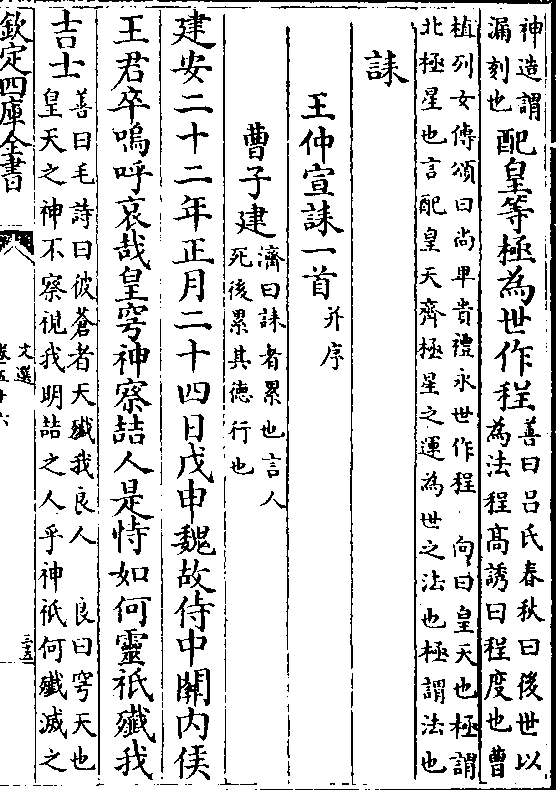 神造謂
漏刻也
配皇等極為世作程
善曰呂氏春秋曰後世以
為法程高誘曰程度也曹
植列女傳頌曰尚卑貴禮永世作程 向曰皇天也極謂
北極星也言配皇天齊極星之運為世之法也極謂法也
誄
王仲宣誄一首
并序
曹子建
濟曰誄者累也言人
死後累其德行也
建安二十二年正月二十四日戊申魏故侍中關内侯
王君卒嗚呼哀哉皇穹神察喆人是恃如何靈祇殲我
吉士
善曰毛詩曰彼蒼者天殲我良人 良曰穹天也
皇天之神不察視我明喆之人乎神祇何殲滅之
欽定四庫全書
文選
卷五十六